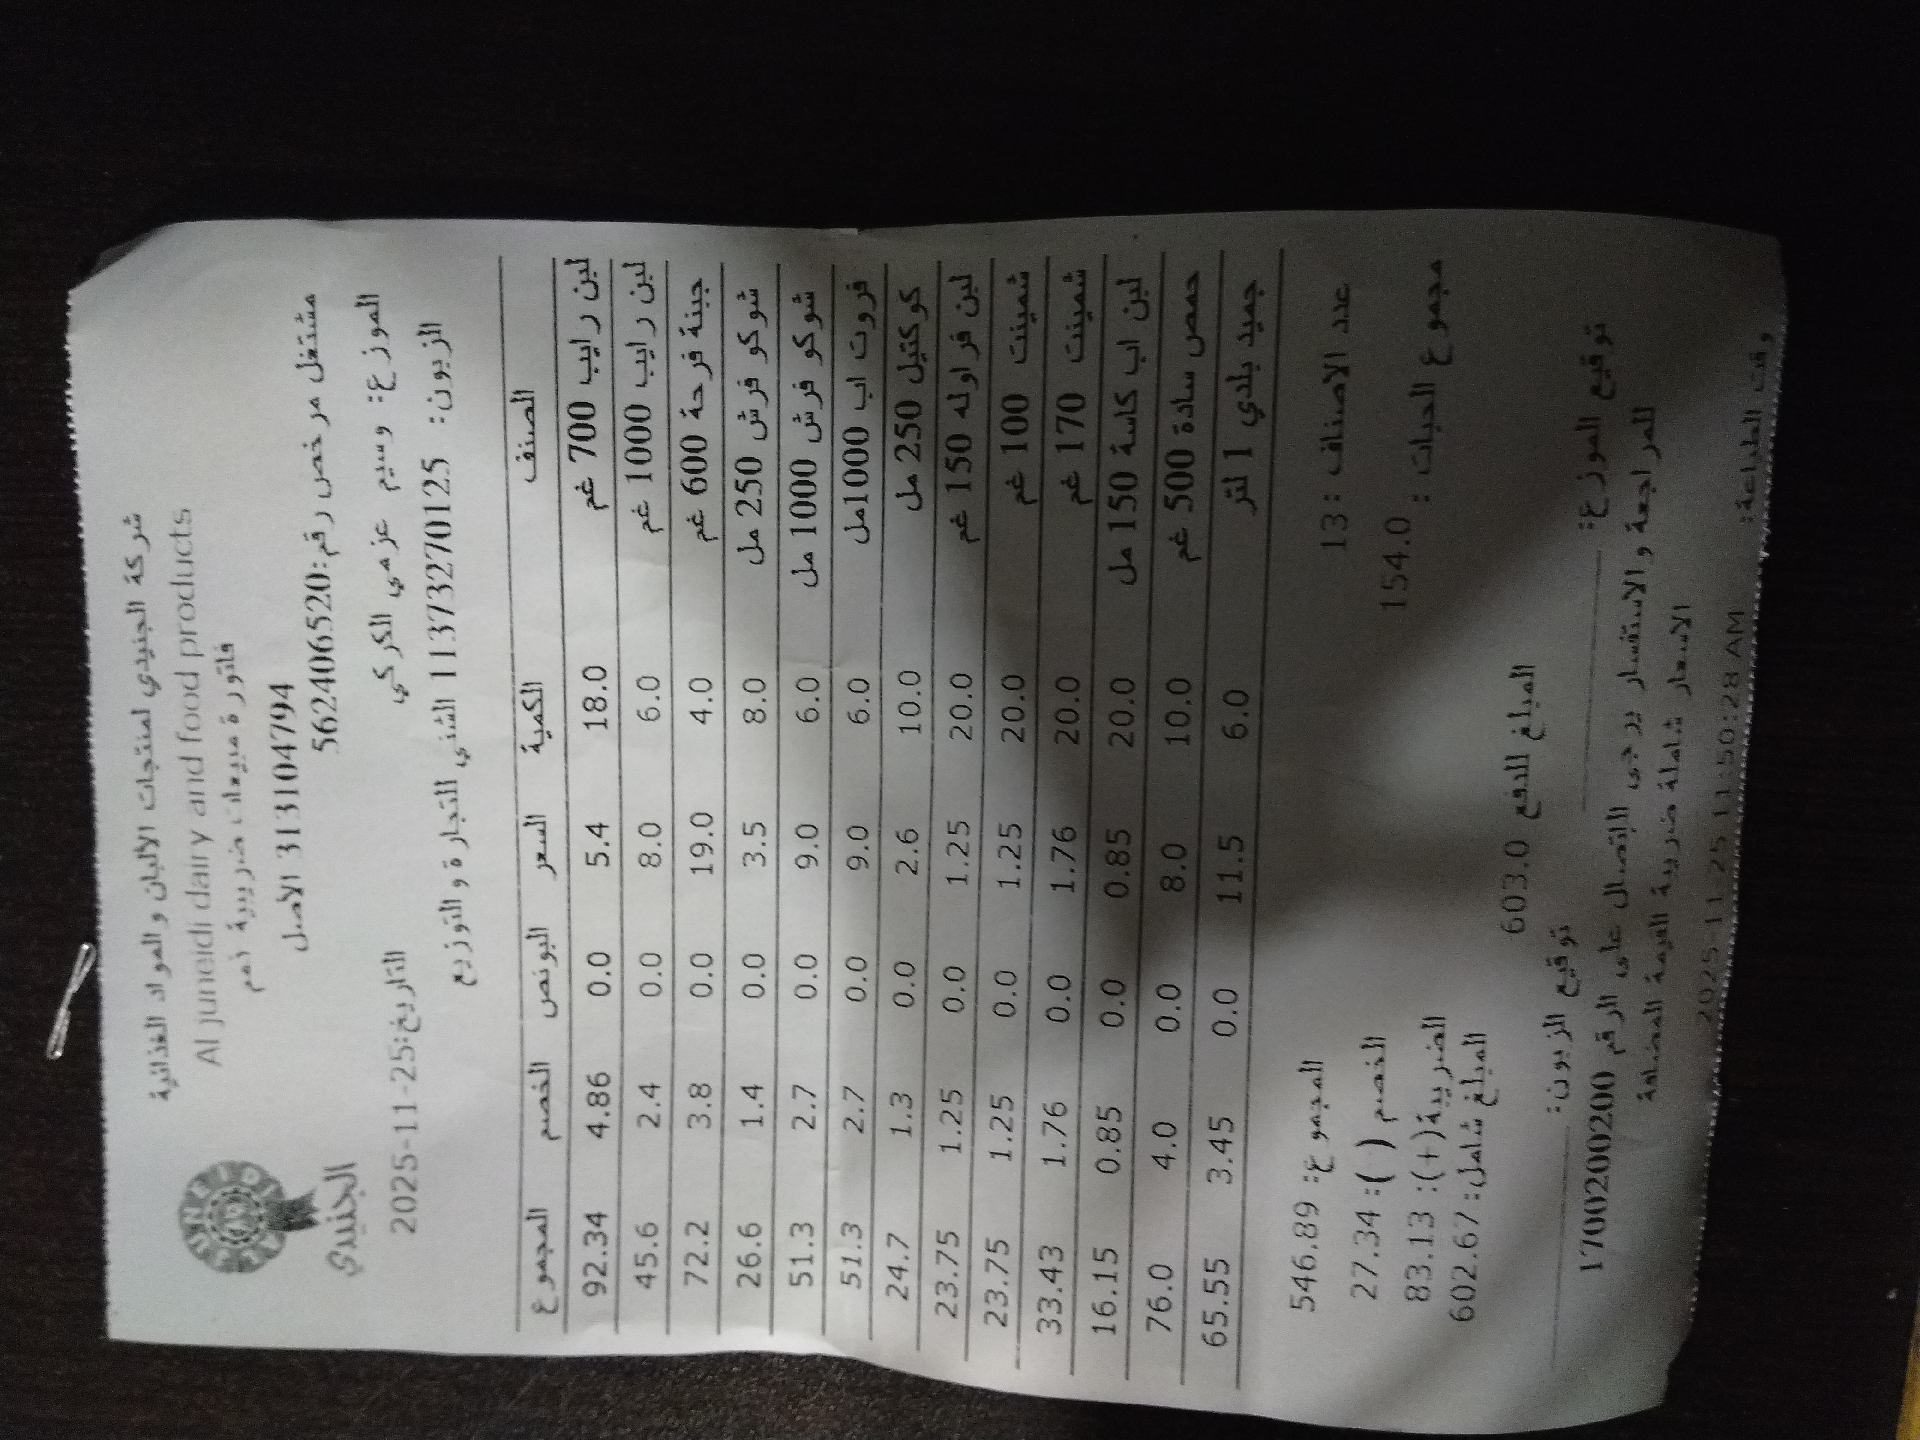 شركة الجنيدي لمنتجات الالبان والمواد الغذائية
Al juneidi dairy and food products
فاتورة مبيعات ضريبية
313104794 الاصل
مشتغل مرخص رقم:562406520
الجنيدي
الموزع: وسيم عزمي الكركي
التاريخ:25-11-2025
الزبون: 11373270125 الشني للتجارة والتوزيع
الصنف الكمية السعر البونص الخصم المجموع
لبن رايب 700 غم 18.0 5.4 0.0 4.86 92.34
لبن رايب 1000 غم 6.0 8.0 0.0 2.4 45.6
جبنة فرحة 600 غم 4.0 19.0 0.0 3.8 72.2
شوكو فرش 250 مل 8.0 3.5 0.0 1.4 26.6
شوكو فرش 1000 مل 6.0 9.0 0.0 2.7 51.3
فروت اب 1000مل 6.0 9.0 0.0 2.7 51.3
كوكتيل 250 مل 10.0 2.6 0.0 1.3 24.7
لبن فراوله 150 غم 20.0 1.25 0.0 1.25 23.75
شمينت 100 غم 20.0 1.25 0.0 1.25 23.75
شمينت 170 غم 20.0 1.76 0.0 1.76 33.43
لبن اب كاسة 150 مل 20.0 0.85 0.0 0.85 16.15
حمص سادة 500 غم 10.0 8.0 0.0 4.0 76.0
جميد بلدي 1 لتر 6.0 11.5 0.0 3.45 65.55
عدد الاصناف :13
المجموع: 546.89
مجموع الحبات : 154.0
الخصم ( ): 27.34
الضريبة(+): 83.13
المبلغ شامل: 602.67
المبلغ للدفع 603.0
توقيع الموزع:
توقيع الزبون:
للمراجعة والاستفسار يرجى الاتصال على الرقم 1700200200
الاسعار شاملة ضريبة القيمة المضافة
وقت الطباعة: 2025-11-25 11:50:28 AM